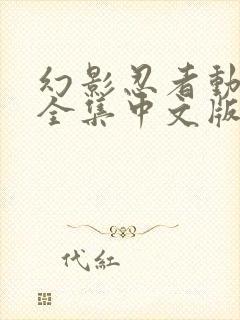 幻影忍者動
全集中文版
代紅